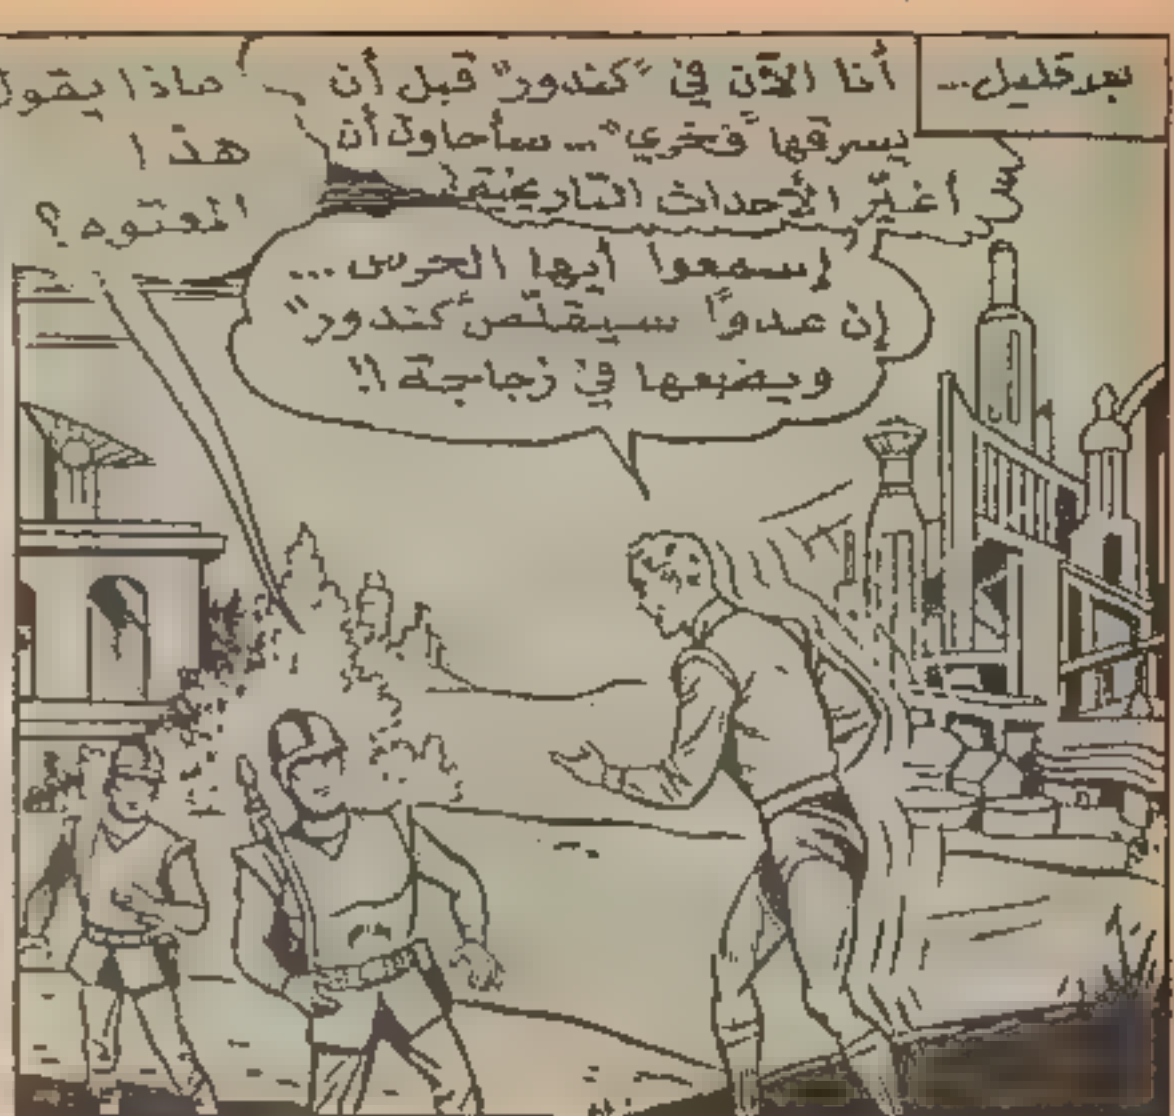 بعد قليل...
أنا الآن في "كندور" قبل أن
يسرقها "فخري"... سأحاول أن
أغيّر الأحداث التاريخية!
إسمعوا أيها الحرس...
إن عدوًا سيقلّص "كندور"
ويضعها في زجاجة!!
ماذا يقول
هذا
المعتوه؟